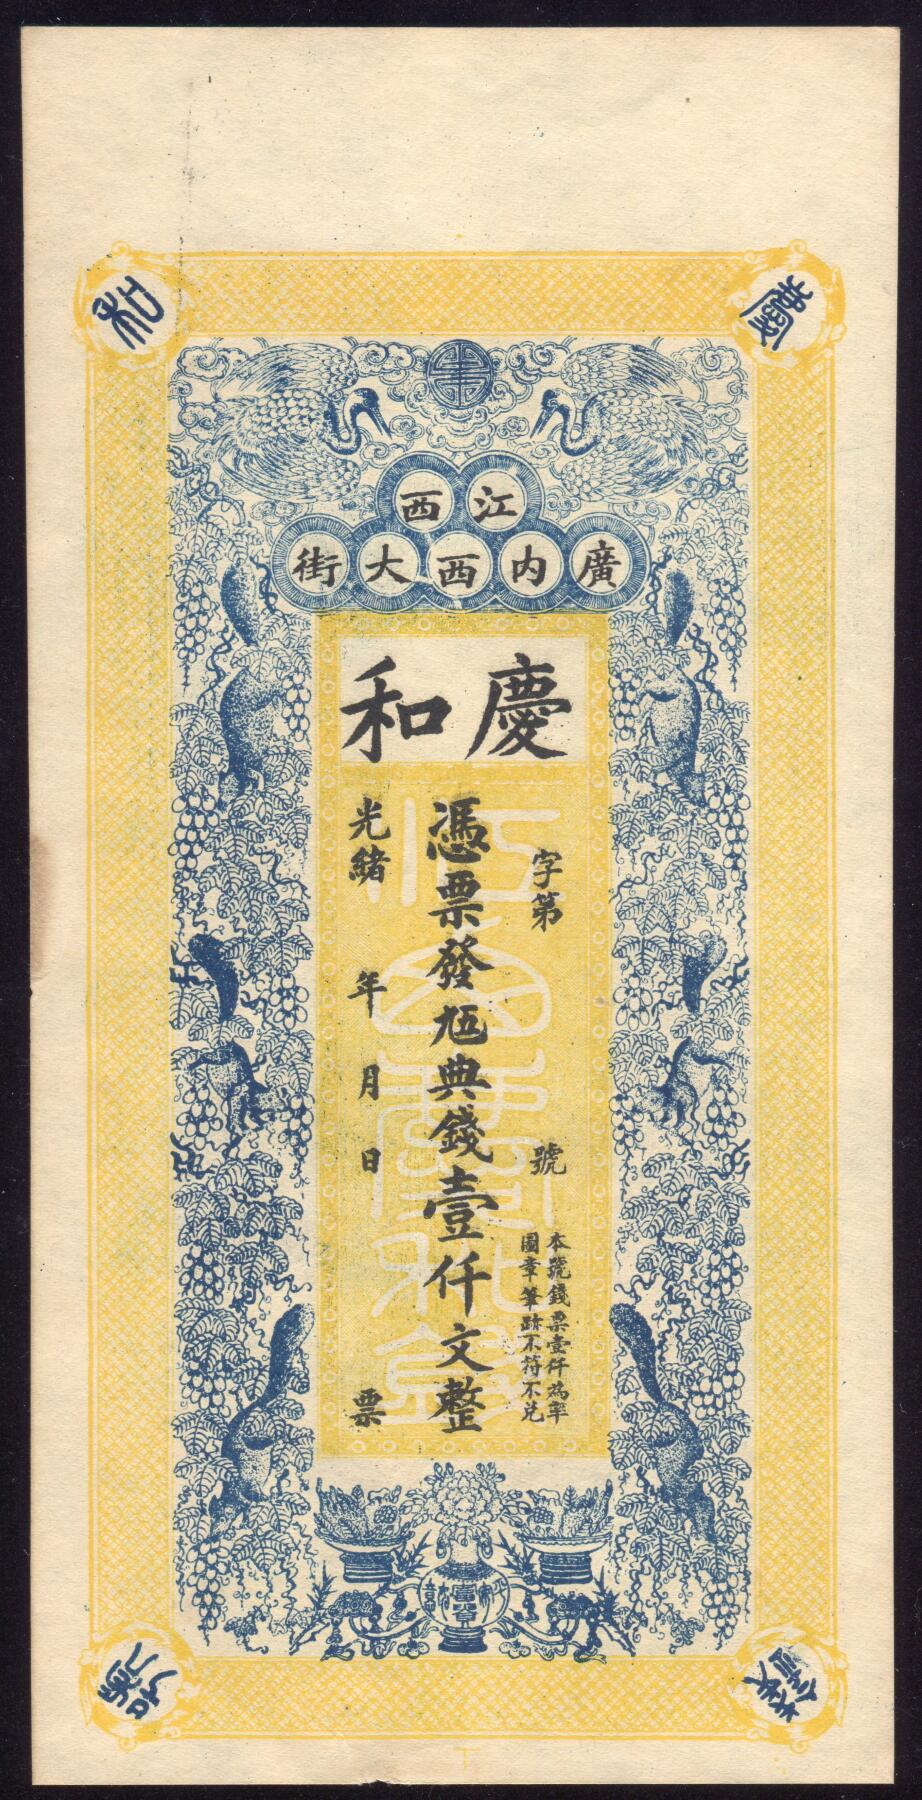 慶和錢號
江西
廣內西大街
慶和
字第 號
本號錢票壹仟為率
圖章筆跡不符不兌
憑票發尪典錢壹仟文整
光緒 年 月 日 票
江西慶和